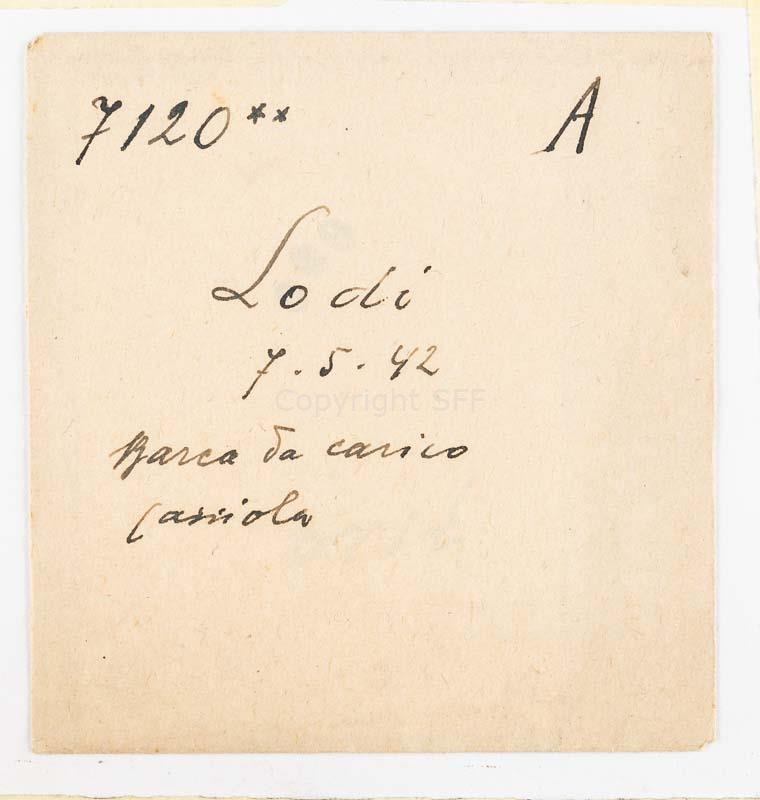 7120** A
Lodi
7.5.42
Copyright SFF
Barca da carico